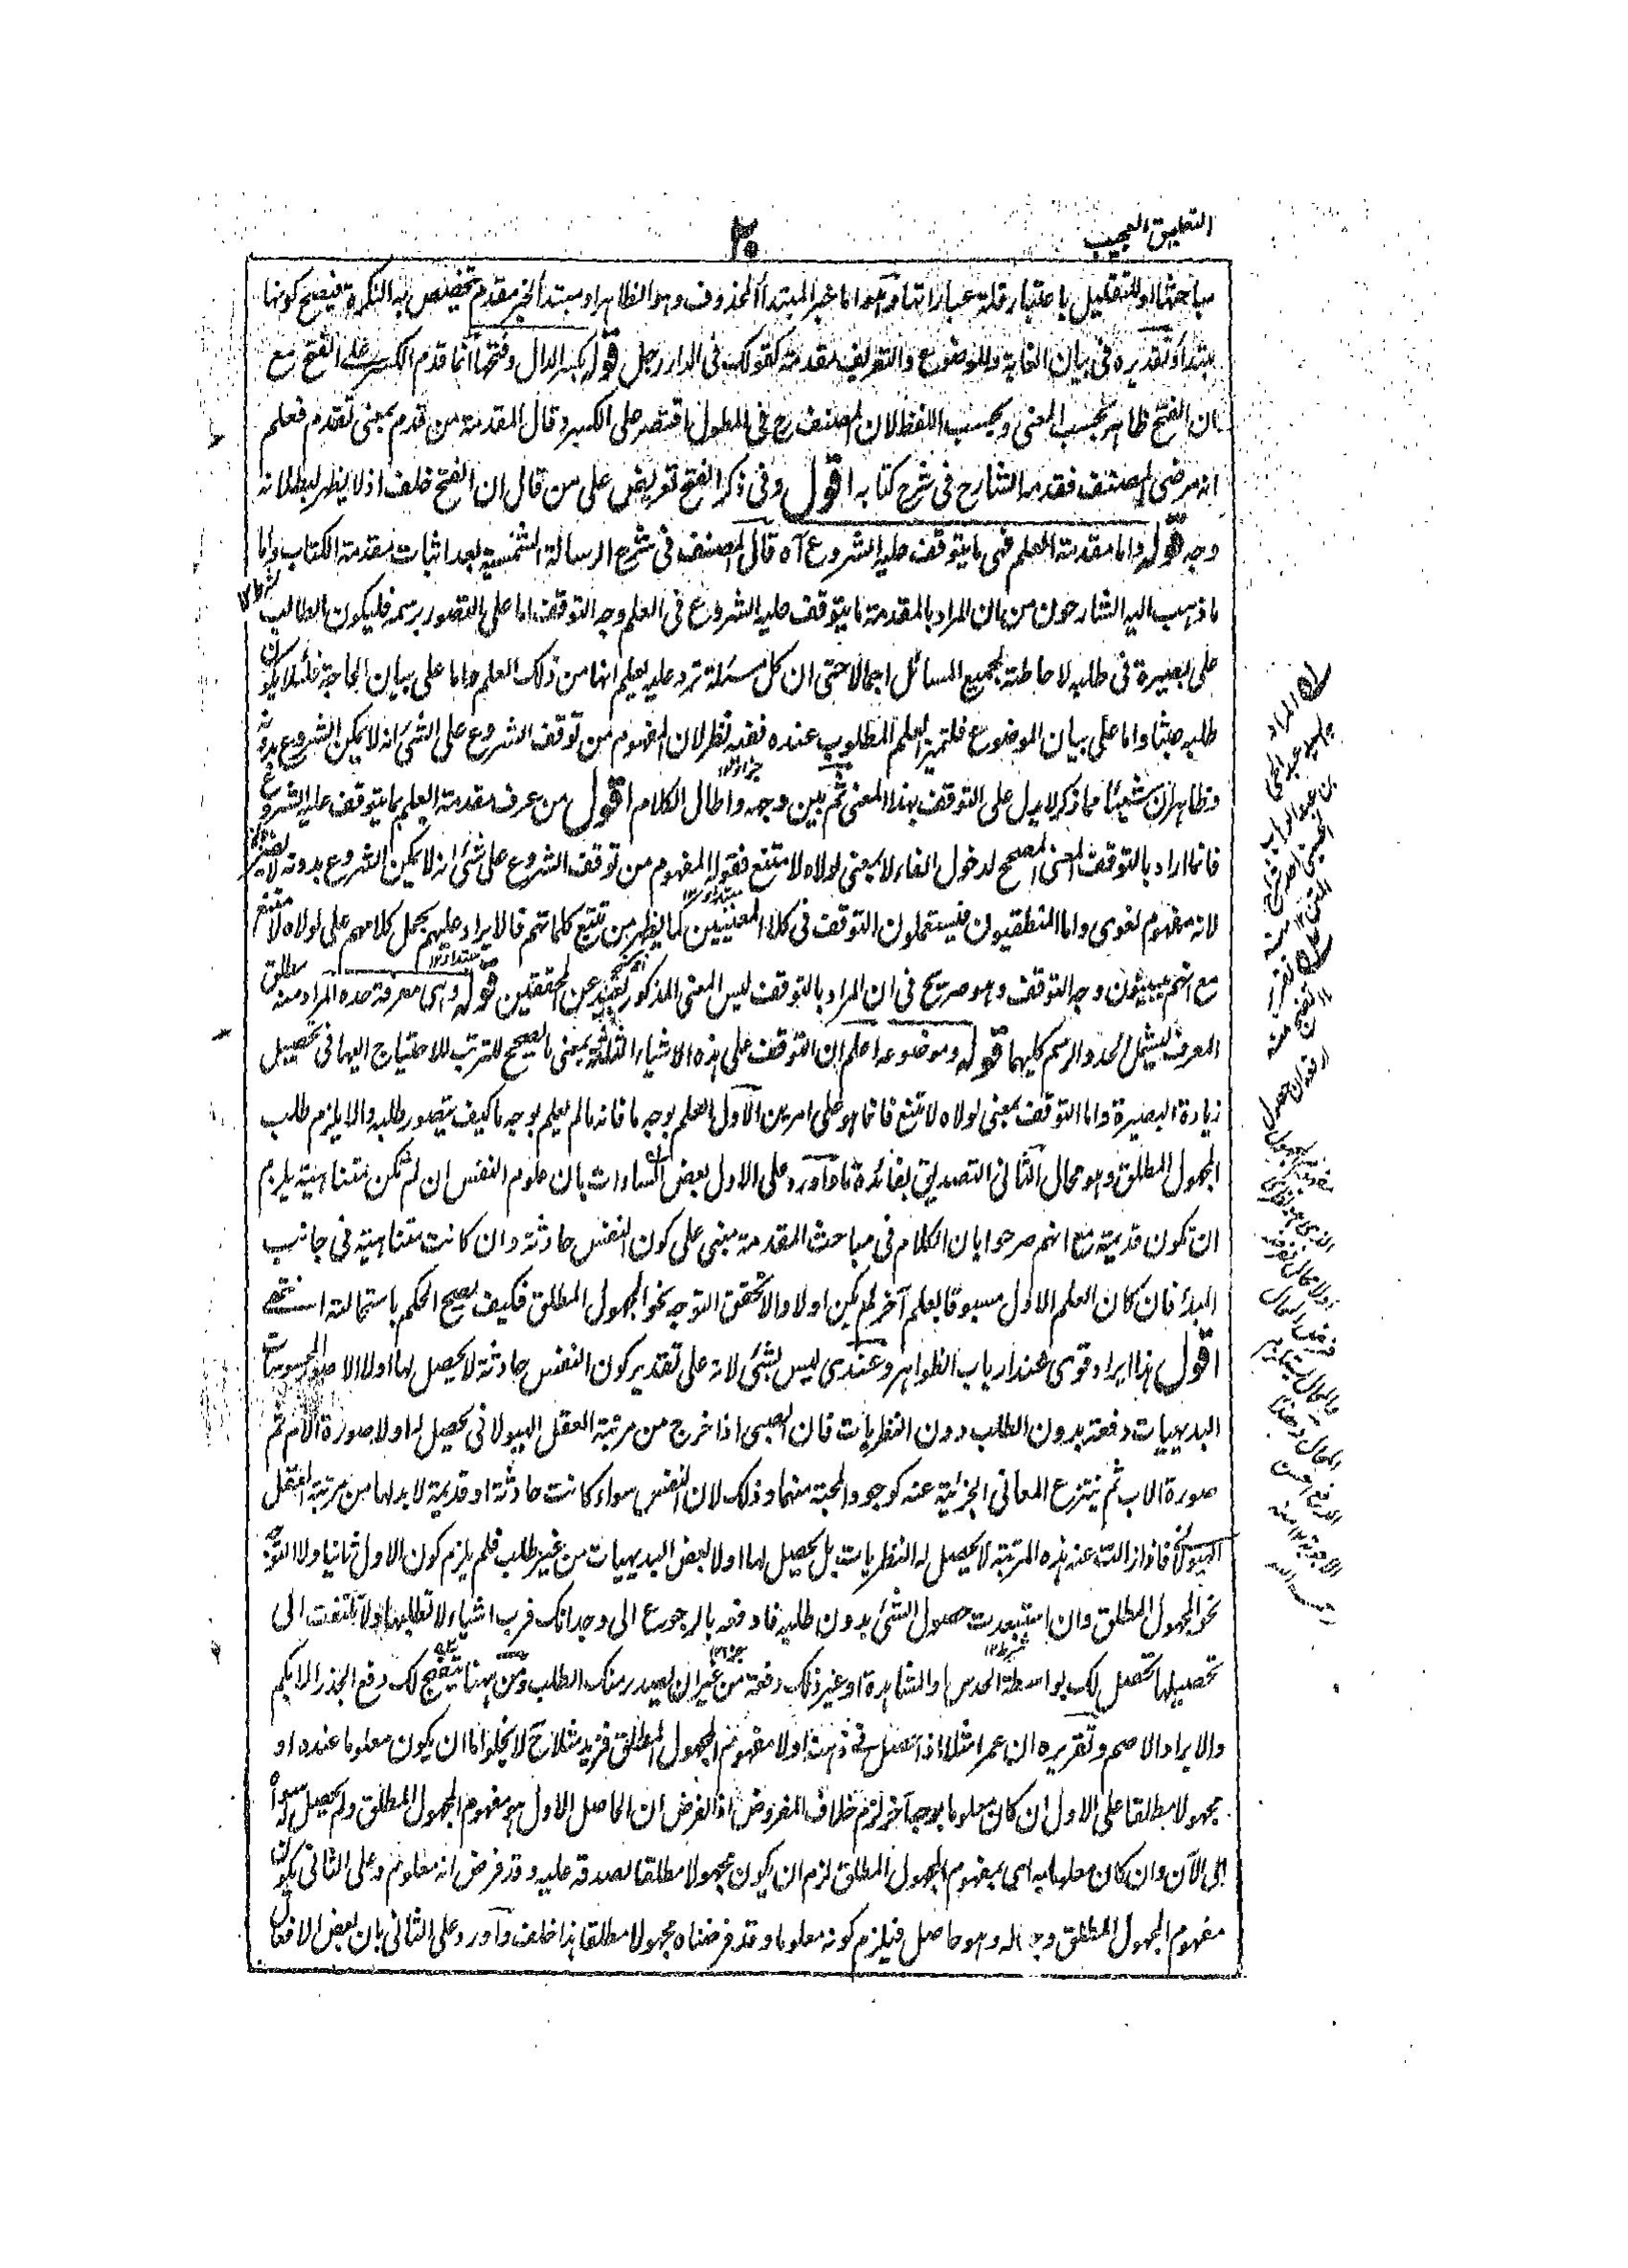 التعليق العجيب
٢٠
مباحثها او للتقليل باعتبار قلة عباراتها وهو اما خبر المبتدأ المحذوف وهو الظاهر او مبتدأ لخبر مقدم تخصيص به النكرة فيصح كونها
مبتدأ وتقديره فى بيان الغاية والموضوع والتعريف مقدمة كقولك فى الدار رجل قوله بكسر الدال وفتحها انما قدم الكسر على الفتح مع
ان الفتح ظاهر بحسب المعنى وبحسب اللفظ لان المصنف رح فى المطول اقتصر على الكسر وقال المقدمة من قدم بمعنى تقدم فعلم
انه مرضى المصنف فقدمه الشارح فى شرح كتابه اقول وفى ذكر الفتح تعريض على من قال ان الفتح خلف اذ لا يظهر لبطلانه
وجه قوله واما مقدمة العلم فهى ما يتوقف عليه الشروع آه قال المصنف فى شرح الرسالة الشمسية بعد اثبات مقدمة الكتاب واما
ما ذهب اليه الشارحون من ان المراد بالمقدمة ما يتوقف عليه الشروع فى العلم وجه التوقف اما على التصور برسمه فليكون الطالب
على بصيرة فى طلبه لاحاطته بجميع المسائل اجمالا حتى ان كل مسئلة ترد عليه يعلم انها من ذلك العلم واما على بيان الحاجة فلئلا يكون
طلبه عبثا واما على بيان الموضوع فلتميز العلم المطلوب عنده ففيه نظر لان المفهوم من توقف الشروع على الشئ انه لا يمكن الشروع بدونه
وظاهر ان شيئا مما ذكر لا يدل على التوقف بهذا المعنى ثم بين وجهه واطال الكلام اقول من عرف مقدمة العلم بما يتوقف عليه الشروع
فانما اراد بالتوقف المعنى المصحح لدخول الفاء لا بمعنى لولاه لامتنع فقوله المفهوم من توقف الشروع على شئ انه لا يمكن الشروع بدونه
لانه مفهوم لغوى واما المنطقيون فيستعملون التوقف فى كلا المعنيين كما يظهر من تتبع كلماتهم فالايراد عليهم بحمل كلامهم على لولاه لامتنع
مع انهم يبينون وجه التوقف وهو صريح فى ان المراد بالتوقف ليس المعنى المذكور بعيد عن المحققين قوله وهى معرفة حده المراد منه مطلق
المعرف ليشمل الحد والرسم كليهما قوله وموضوعه اعلم ان التوقف على هذه الاشياء الثلثة بمعنى المصحح للترتب للاحتياج اليها فى تحصيل
زيادة البصيرة واما التوقف بمعنى لولاه لامتنع فانما هو على امرين الاول العلم بوجه ما فانه ما لم يعلم بوجه ما كيف يتصور طلبه والا يلزم طلب
المجهول المطلق وهو محال الثانى التصديق بفائدة ما واورد على الاول بعض السادات بان علوم النفس ان لم تكن متناهية يلزم
ان تكون قديمة مع انهم صرحوا بان الكلام فى مباحث المقدمة مبنى على كون النفس حادثة وان كانت متناهية فى جانب
المبدء فان كان العلم الاول مسبوقا بعلم آخر لم يكن اولا والا تحقق التوجه نحو المجهول المطلق فكيف يصح الحكم باستحالته انتهى
اقول هذا ايراد قوى عند ارباب الظواهر وعندى ليس بشئ لانه على تقدير كون النفس حادثة لا يحصل لها اولا الا صور المحسوسات
البديهيات دفعة بدون الطلب دون النظريات فان الصبى اذا خرج من مرتبة العقل الهيولانى يحصل له اولا صورة الام ثم
صورة الاب ثم ينتزع المعانى الجزئية عنه كوجود المحبة منهما وذلك لان النفس سواء كانت حادثة او قديمة لا بد لها من مرتبة العقل
الهيولانى فاذا زالت عنه هذه المرتبة لا يحصل له النظريات بل يحصل لها اولا بعض البديهيات من غير طلب فلم يلزم كون الاول ثانيا ولا التوجه
نحو المجهول المطلق وان استبعدت حصول الشئ بدون طلبه فادفعه بالرجوع الى وجدانك فرب اشياء لا تطلبها ولا تلتفت الى
تحصيلها تحصل لك بواسطة الحدس او المشاهدة او غير ذلك دفعة من غير ان يصدر منك الطلب ومن ههنا يتضح لك دفع الجذر الابكم
والايراد الاصم وتقريره ان عمرا مثلا اذا حصل فى ذهنه اولا مفهوم المجهول المطلق فزيد مثلا ح لا يخلو اما ان يكون معلوما عنده او
مجهولا مطلقا على الاول ان كان معلوما بوجه آخر لزم خلاف المفروض اذ الفرض ان الحاصل الاول هو مفهوم المجهول المطلق ولم يحصل له سواه
الى الآن وان كان معلوما به اى بمفهوم المجهول المطلق لزم ان يكون مجهولا مطلقا لصدقه عليه وقد فرض انه معلوم وعلى الثانى يكون
مفهوم المجهول المطلق وجها له وهو حاصل فيلزم كونه معلوما وقد فرضناه مجهولا مطلقا هذا خلف واورد على الثانى بان بعض الافعال